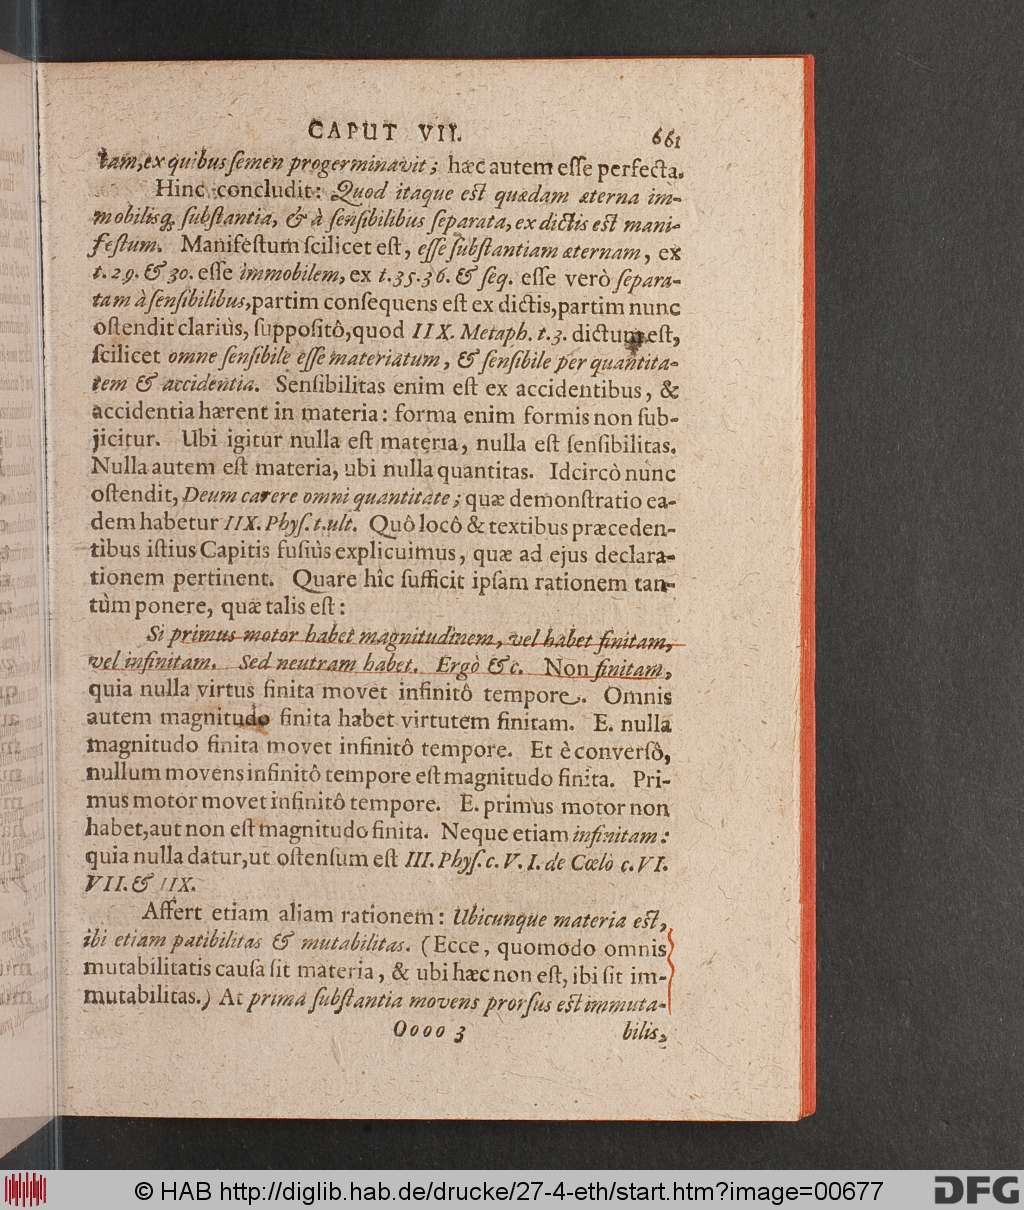 CAPUT VII. 661
tam, ex quibus ſemen progerminavit; hæc autem eſſe perfecta.
Hinc concludit: Quod itaque eſt quædam æterna im-
mobilisq; ſubſtantia, & à ſenſibilibus ſeparata, ex dictis eſt mani-
feſtum. Manifeſtum ſcilicet eſt, eſſe ſubſtantiam æternam, ex
t. 29. & 30. eſſe immobilem, ex t. 35. 36. & ſeq. eſſe verò ſepara-
tam à ſenſibilibus, partim conſequens eſt ex dictis, partim nunc
oſtendit clariùs, ſuppoſitô, quod IIX. Metaph. t. 3. dictum eſt,
ſcilicet omne ſenſibile eſſe materiatum, & ſenſibile per quantita-
tem & accidentia. Senſibilitas enim eſt ex accidentibus, &
accidentia hærent in materia: forma enim formis non ſub-
jicitur. Ubi igitur nulla eſt materia, nulla eſt ſenſibilitas.
Nulla autem eſt materia, ubi nulla quantitas. Idcircò nunc
oſtendit, Deum carere omni quantitate; quæ demonſtratio ea-
dem habetur IIX. Phyſ. t. ult. Quô locô & textibus præceden-
tibus iſtius Capitis fuſiùs explicuimus, quæ ad ejus declara-
tionem pertinent. Quare hîc ſufficit ipſam rationem tan-
tùm ponere, quæ talis eſt:
Si primus motor habet magnitudinem, vel habet finitam,
vel infinitam. Sed neutram habet. Ergò &c. Non finitam,
quia nulla virtus finita movet infinitô tempore. Omnis
autem magnitudo finita habet virtutem finitam. E. nulla
magnitudo finita movet infinitô tempore. Et è converſô,
nullum movens infinitô tempore eſt magnitudo finita. Pri-
mus motor movet infinitô tempore. E. primus motor non
habet, aut non eſt magnitudo finita. Neque etiam infinitam:
quia nulla datur, ut oſtenſum eſt III. Phyſ. c. V. I. de Cœlò c. VI.
VII. & IIX.
Affert etiam aliam rationem: Ubicunque materia eſt,
ibi etiam patibilitas & mutabilitas. (Ecce, quomodo omnis
mutabilitatis cauſa ſit materia, & ubi hæc non eſt, ibi ſit im-
mutabilitas.) At prima ſubſtantia movens prorſus eſt immuta-
Oooo 3 bilis,
© HAB http://diglib.hab.de/drucke/27-4-eth/start.htm?image=00677 DFG